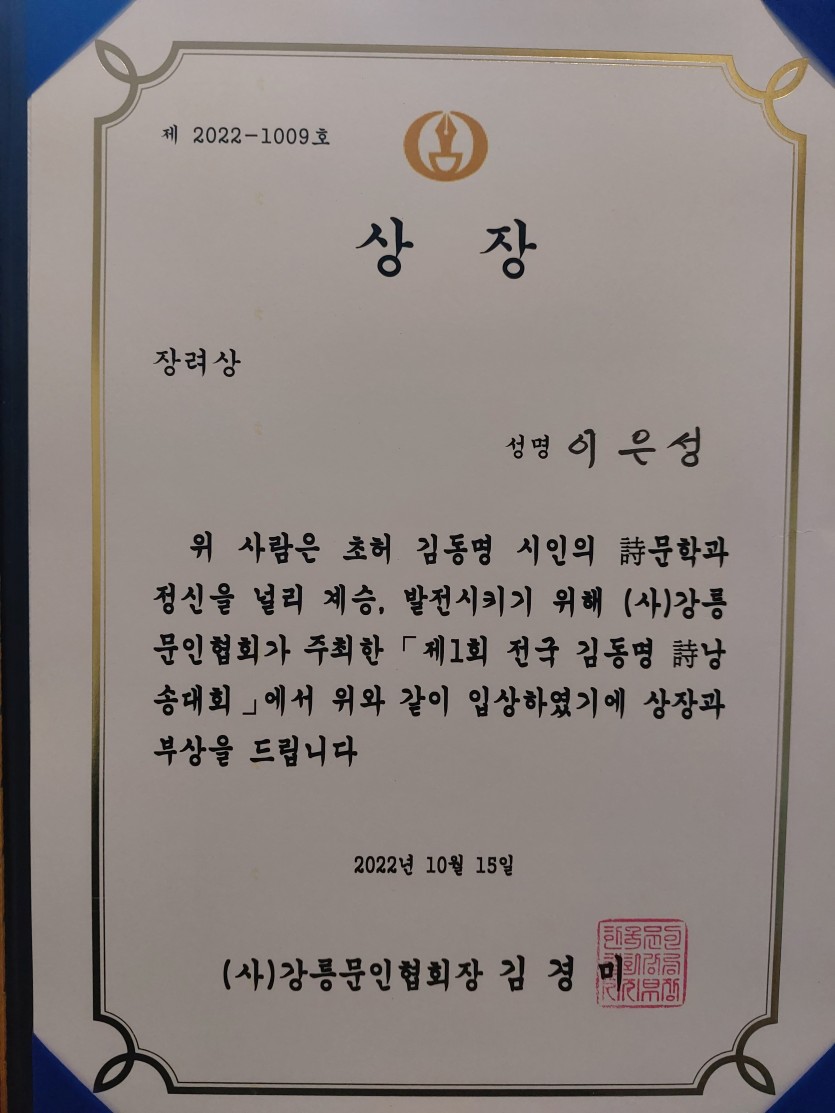 제 2022-1009호
상 장
장려상
성명 이 은 성
위 사람은 초허 김동명 시인의 詩문학과
정신을 널리 계승, 발전시키기 위해 (사)강릉
문인협회가 주최한 「제1회 전국 김동명 詩낭
송대회」에서 위와 같이 입상하였기에 상장과
부상을 드립니다
2022년 10월 15일
(사)강릉문인협회장 김 경 미